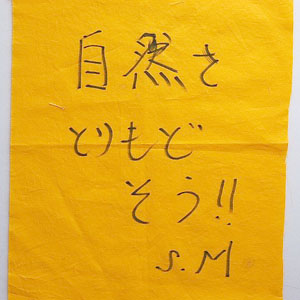 自然さ
とりもど
そう!!
S.M